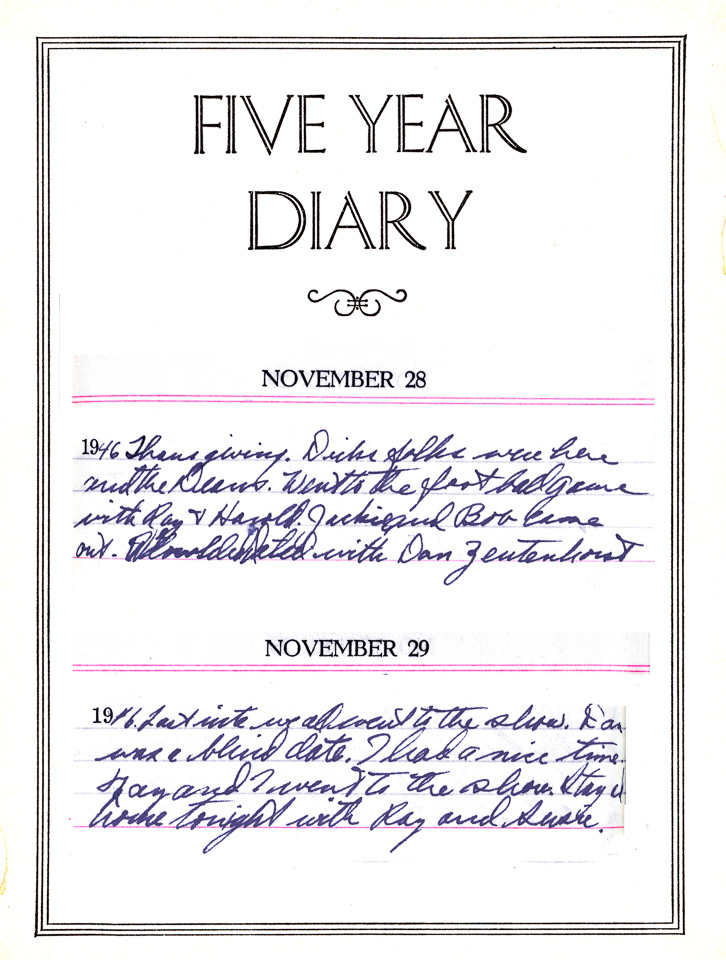 FIVE YEAR
DIARY
NOVEMBER 28
1946 Thansgiving. Dicks folks were here
and the Deans. Went to the foot ball game
with Ray & Harold. Jackie and Bob came
out. with Dan Zeutenhorst
NOVEMBER 29
1946. Last nite we all went to the show. Dan
was a blind date. I had a nice time.
Ray and I went to the show. Stay
home tonight with Ray and